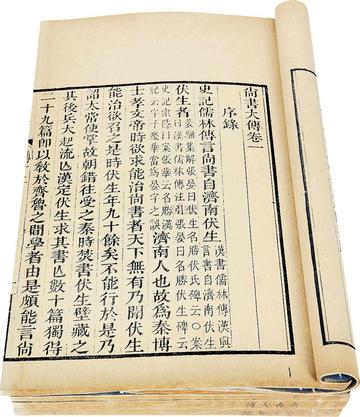 尚書大傳卷一
序錄
史記儒林傳言尚書自濟南伏生
漢書儒林傳漢興
言書自濟南伏生
伏生者
張晏曰名勝伏氏碑云
濟南人也故為秦博
士孝文帝時欲求能治尚書者天下無有乃聞伏生
能治欲召之是時伏生年九十餘矣不能行於是乃
詔太常使掌故朝錯往受之秦時焚書伏生壁藏之
其後兵大起流亾漢定伏生求其書亾數十篇獨得
二十九篇即以敎於齊魯之閒學者由是頗能言尚